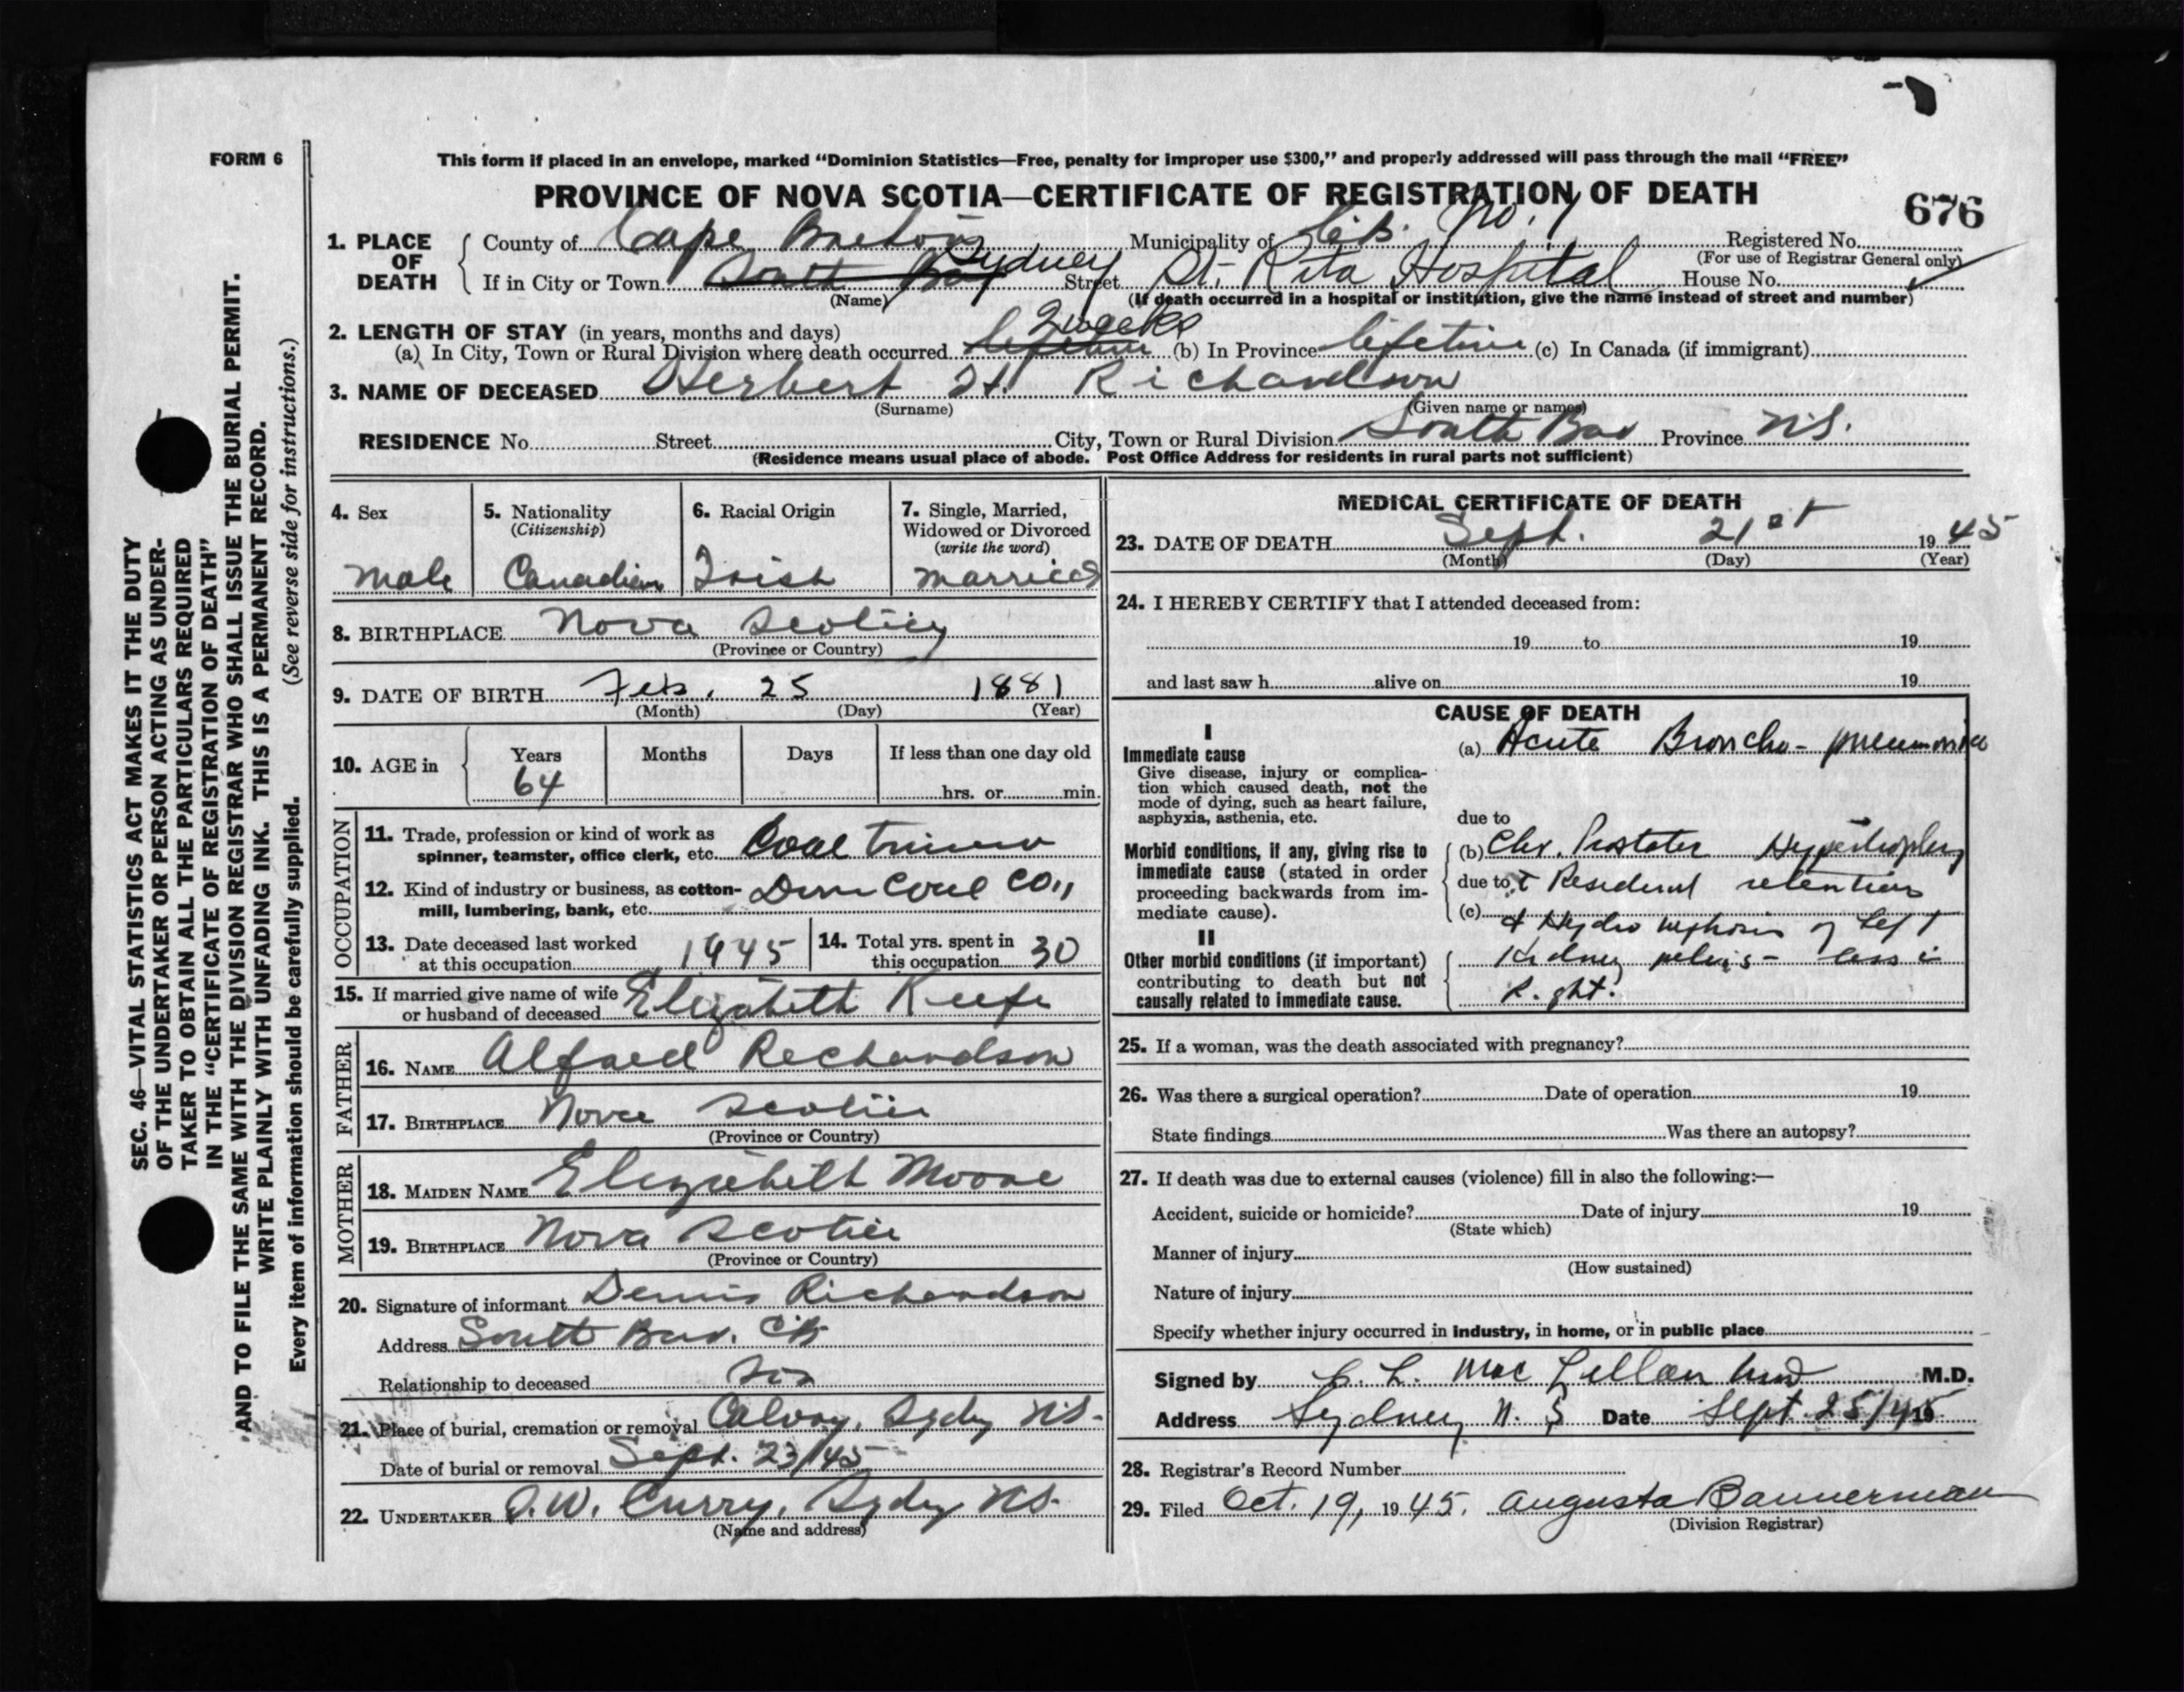 FORM 6
This form if placed in an envelope, marked “Dominion Statistics—Free, penalty for improper use $300,” and properly addressed will pass through the mail “FREE”
PROVINCE OF NOVA SCOTIA—CERTIFICATE OF REGISTRATION OF DEATH
676
1. PLACE OF DEATH County of Cape Breton Municipality of C.B. No. 1 Registered No.
(For use of Registrar General only)
If in City or Town South Bar Sydney Street St. Rita Hospital House No.
(Name) (If death occurred in a hospital or institution, give the name instead of street and number)
2. LENGTH OF STAY (in years, months and days) 2 weeks
(a) In City, Town or Rural Division where death occurred lifetime (b) In Province lifetime (c) In Canada (if immigrant)
3. NAME OF DECEASED Herbert St. Richardson
(Surname) (Given name or names)
RESIDENCE No. Street City, Town or Rural Division South Bar Province N.S.
(Residence means usual place of abode. Post Office Address for residents in rural parts not sufficient)
4. Sex 5. Nationality 6. Racial Origin 7. Single, Married,
(Citizenship) Widowed or Divorced
(write the word)
Male Canadian Irish Married
8. BIRTHPLACE Nova Scotia
(Province or Country)
9. DATE OF BIRTH Feb. 25 1881
(Month) (Day) (Year)
10. AGE in Years Months Days If less than one day old
64 hrs. or min.
OCCUPATION
11. Trade, profession or kind of work as
spinner, teamster, office clerk, etc. Coal trimmer
12. Kind of industry or business, as cotton-
mill, lumbering, bank, etc. Dom Coal Co.,
13. Date deceased last worked
at this occupation 1945
14. Total yrs. spent in
this occupation 30
15. If married give name of wife
or husband of deceased Elizabeth Keefe
FATHER
16. NAME Alfred Richardson
17. BIRTHPLACE Nova Scotia
(Province or Country)
MOTHER
18. MAIDEN NAME Elizabeth Moore
19. BIRTHPLACE Nova Scotia
(Province or Country)
20. Signature of informant Dennis Richardson
Address South Bar. C.B.
Relationship to deceased
21. Place of burial, cremation or removal Calvary, Sydney N.S.
Date of burial or removal Sept. 23/45
22. UNDERTAKER W. Curry, Sydney N.S.
(Name and address)
MEDICAL CERTIFICATE OF DEATH
23. DATE OF DEATH Sept. 21st 1945
(Month) (Day) (Year)
24. I HEREBY CERTIFY that I attended deceased from:
19 to 19
and last saw h alive on 19
CAUSE OF DEATH
I
Immediate cause
Give disease, injury or complica-
tion which caused death, not the
mode of dying, such as heart failure,
asphyxia, asthenia, etc.
(a) Acute Broncho-pneumonia
due to
Morbid conditions, if any, giving rise to
immediate cause (stated in order
proceeding backwards from im-
mediate cause).
(b) Chr. Prostatic Hypertrophy
due to c̄ Residual retention
(c) & Hydronephrosis of left
II
Other morbid conditions (if important)
contributing to death but not
causally related to immediate cause.
Kidney pelvis - less in
Right.
25. If a woman, was the death associated with pregnancy?
26. Was there a surgical operation? Date of operation 19
State findings Was there an autopsy?
27. If death was due to external causes (violence) fill in also the following:—
Accident, suicide or homicide? Date of injury 19
(State which)
Manner of injury
(How sustained)
Nature of injury
Specify whether injury occurred in industry, in home, or in public place
Signed by L. MacLellan M.D.
Address Sydney N.S Date Sept. 25/45 19
28. Registrar's Record Number
29. Filed Oct. 19, 1945. Augusta Bannerman
(Division Registrar)
SEC. 46—VITAL STATISTICS ACT MAKES IT THE DUTY
OF THE UNDERTAKER OR PERSON ACTING AS UNDER-
TAKER TO OBTAIN ALL THE PARTICULARS REQUIRED
IN THE “CERTIFICATE OF REGISTRATION OF DEATH”
AND TO FILE THE SAME WITH THE DIVISION REGISTRAR WHO SHALL ISSUE THE BURIAL PERMIT.
WRITE PLAINLY WITH UNFADING INK. THIS IS A PERMANENT RECORD.
Every item of information should be carefully supplied. (See reverse side for instructions.)